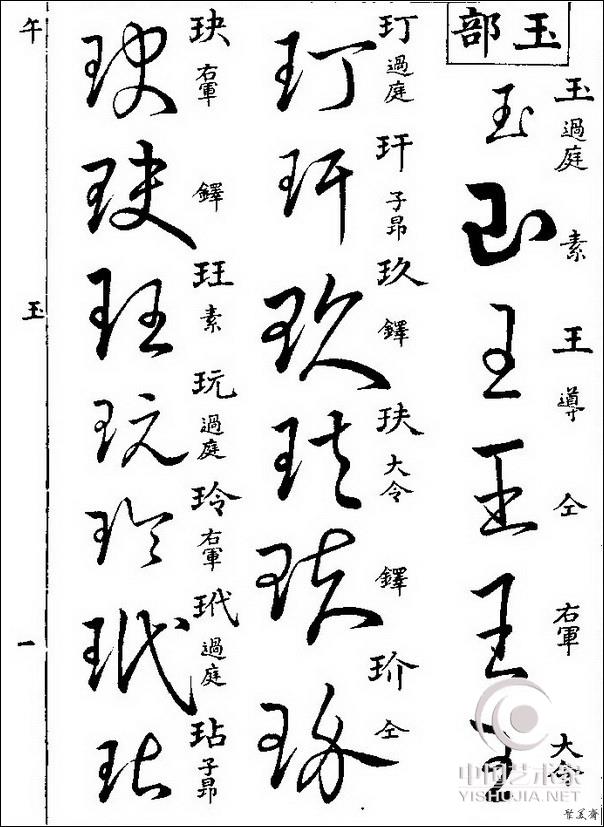 玉部
玉 過庭
素
王 導
仝
右軍
大令
玎 過庭
玕 子昂
玖 鐸
玞 大令
鐸
玠 仝
玦 右軍
鐸
玨 素
玩 過庭
玲 右軍
玳 過庭
玷 子昂
午
玉
一
中国艺术家
YISHUJIA.NET